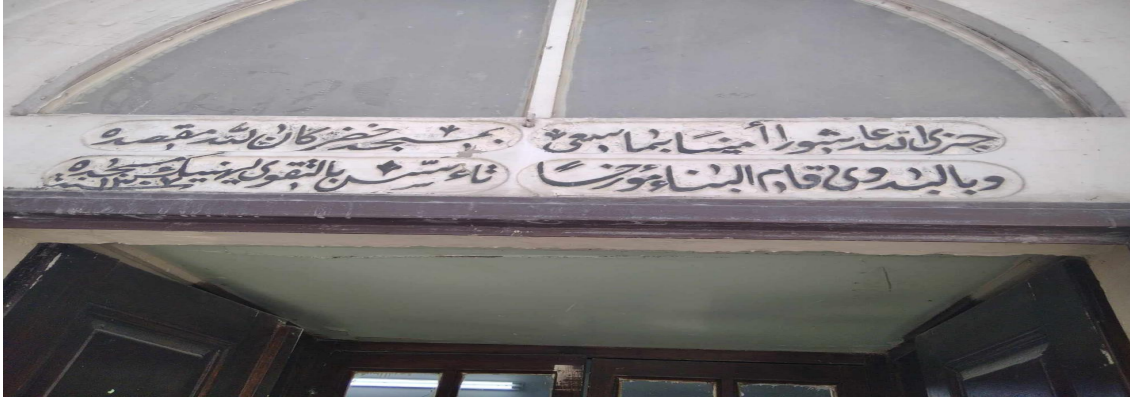 جزى الله عاشورا أمينا بما سعى بمسجد خضر كان لله مقصده
وبالبدوى قام البناء مؤرخا تأسس بالتقوى ليهنيك مسجده